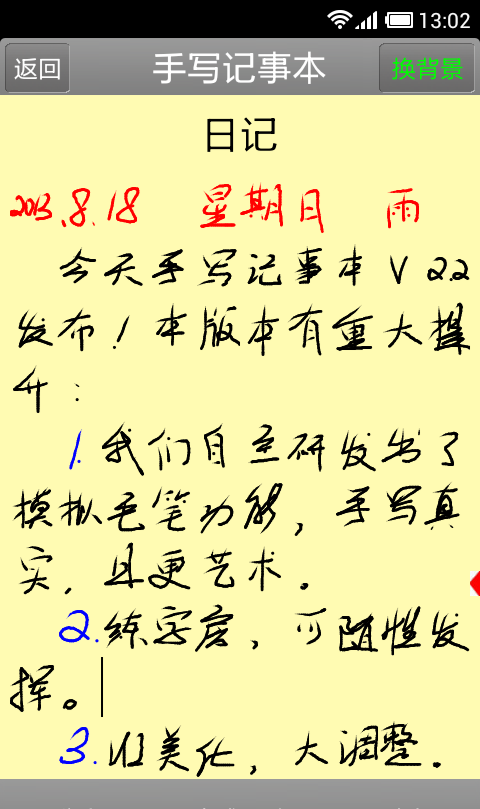 13:02
返回 手写记事本 换背景
日记
2013.8.18 星期日 雨
今天手写记事本V2.2
发布!本版本有重大提
升:
1.我们自主研发出了
模拟毛笔功能,手写真
实,且更艺术。
2.练字度,可随性发
挥。
3.UI美化,大调整.